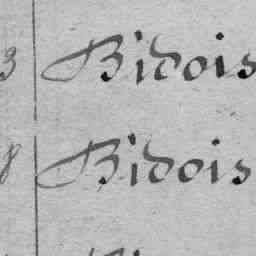 3 Bidois
8 Bidois